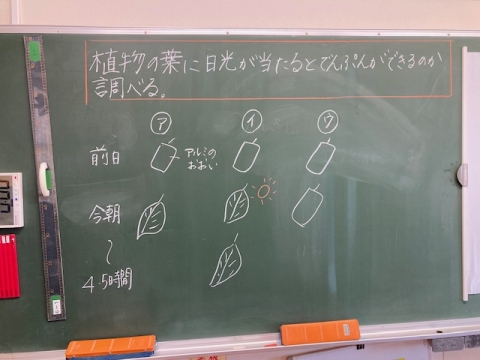 植物の葉に日光が当たるとでんぷんができるのか
調べる。
㋐ ㋑ ㋒
前日 アルミの
おおい
今朝
〜
4、5時間